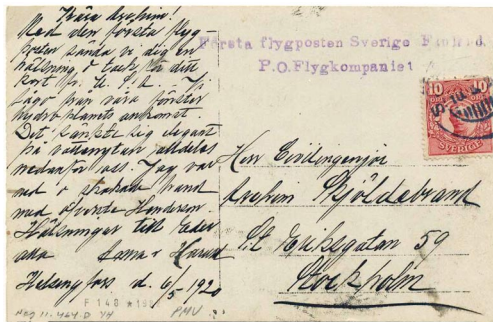 Kära Archim!
Med den första flyg-
posten sända vi dig en
hälsning o tack för ditt
kort fr. U.S.A. Vi
sågo från våra fönster
hydroplanets ankomst
Det sänkte sig elegant
på vattenytan alldeles
nedanför oss. Jag var
med o skakade hand
med Henderson
Hälsningar till Eder
alla
Helsingfors d. 6/5 - 1920
Första flygposten Sverige Finland.
P.O.Flygkompaniet
10 10
SVERIGE
Herr Civilingenjör
Archim Sköldebrand
S:t Eriksgatan 59
Stockholm
F 148 *198
PMV